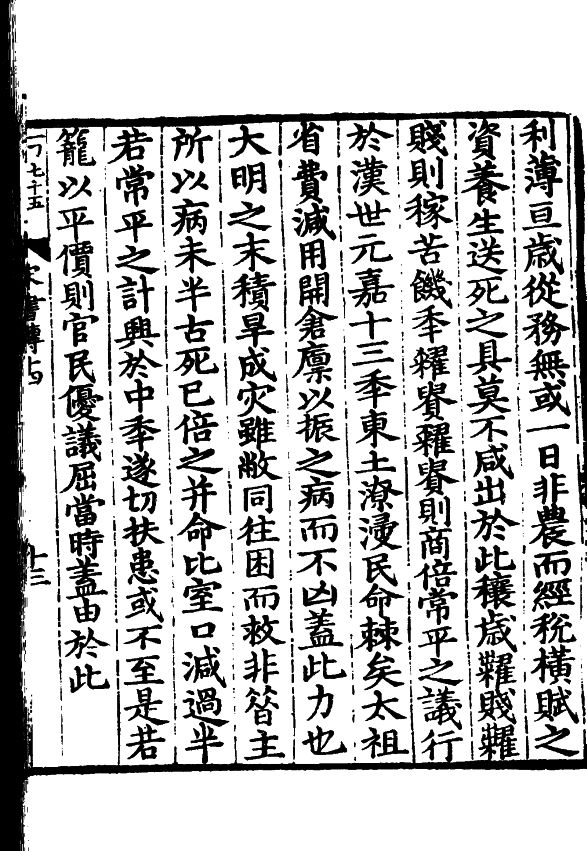 利薄亘歳從務無或一日非農而經稅橫賦之
資養生送死之具莫不咸出於此穰歳糶賤糶
賤則稼苦饑秊糴貴糴貴則商倍常平之議行
於漢世元嘉十三秊東土潦浸民命棘矣太祖
省費減用開倉廩以振之病而不凶蓋此力也
大明之末積旱成灾雖敝同往困而救非昝主
所以病未半古死已倍之并命比室口減過半
若常平之計興於中秊遂切扶患或不至是若
籠以平價則官民優議屈當時蓋由於此
宋書傳十四
十三